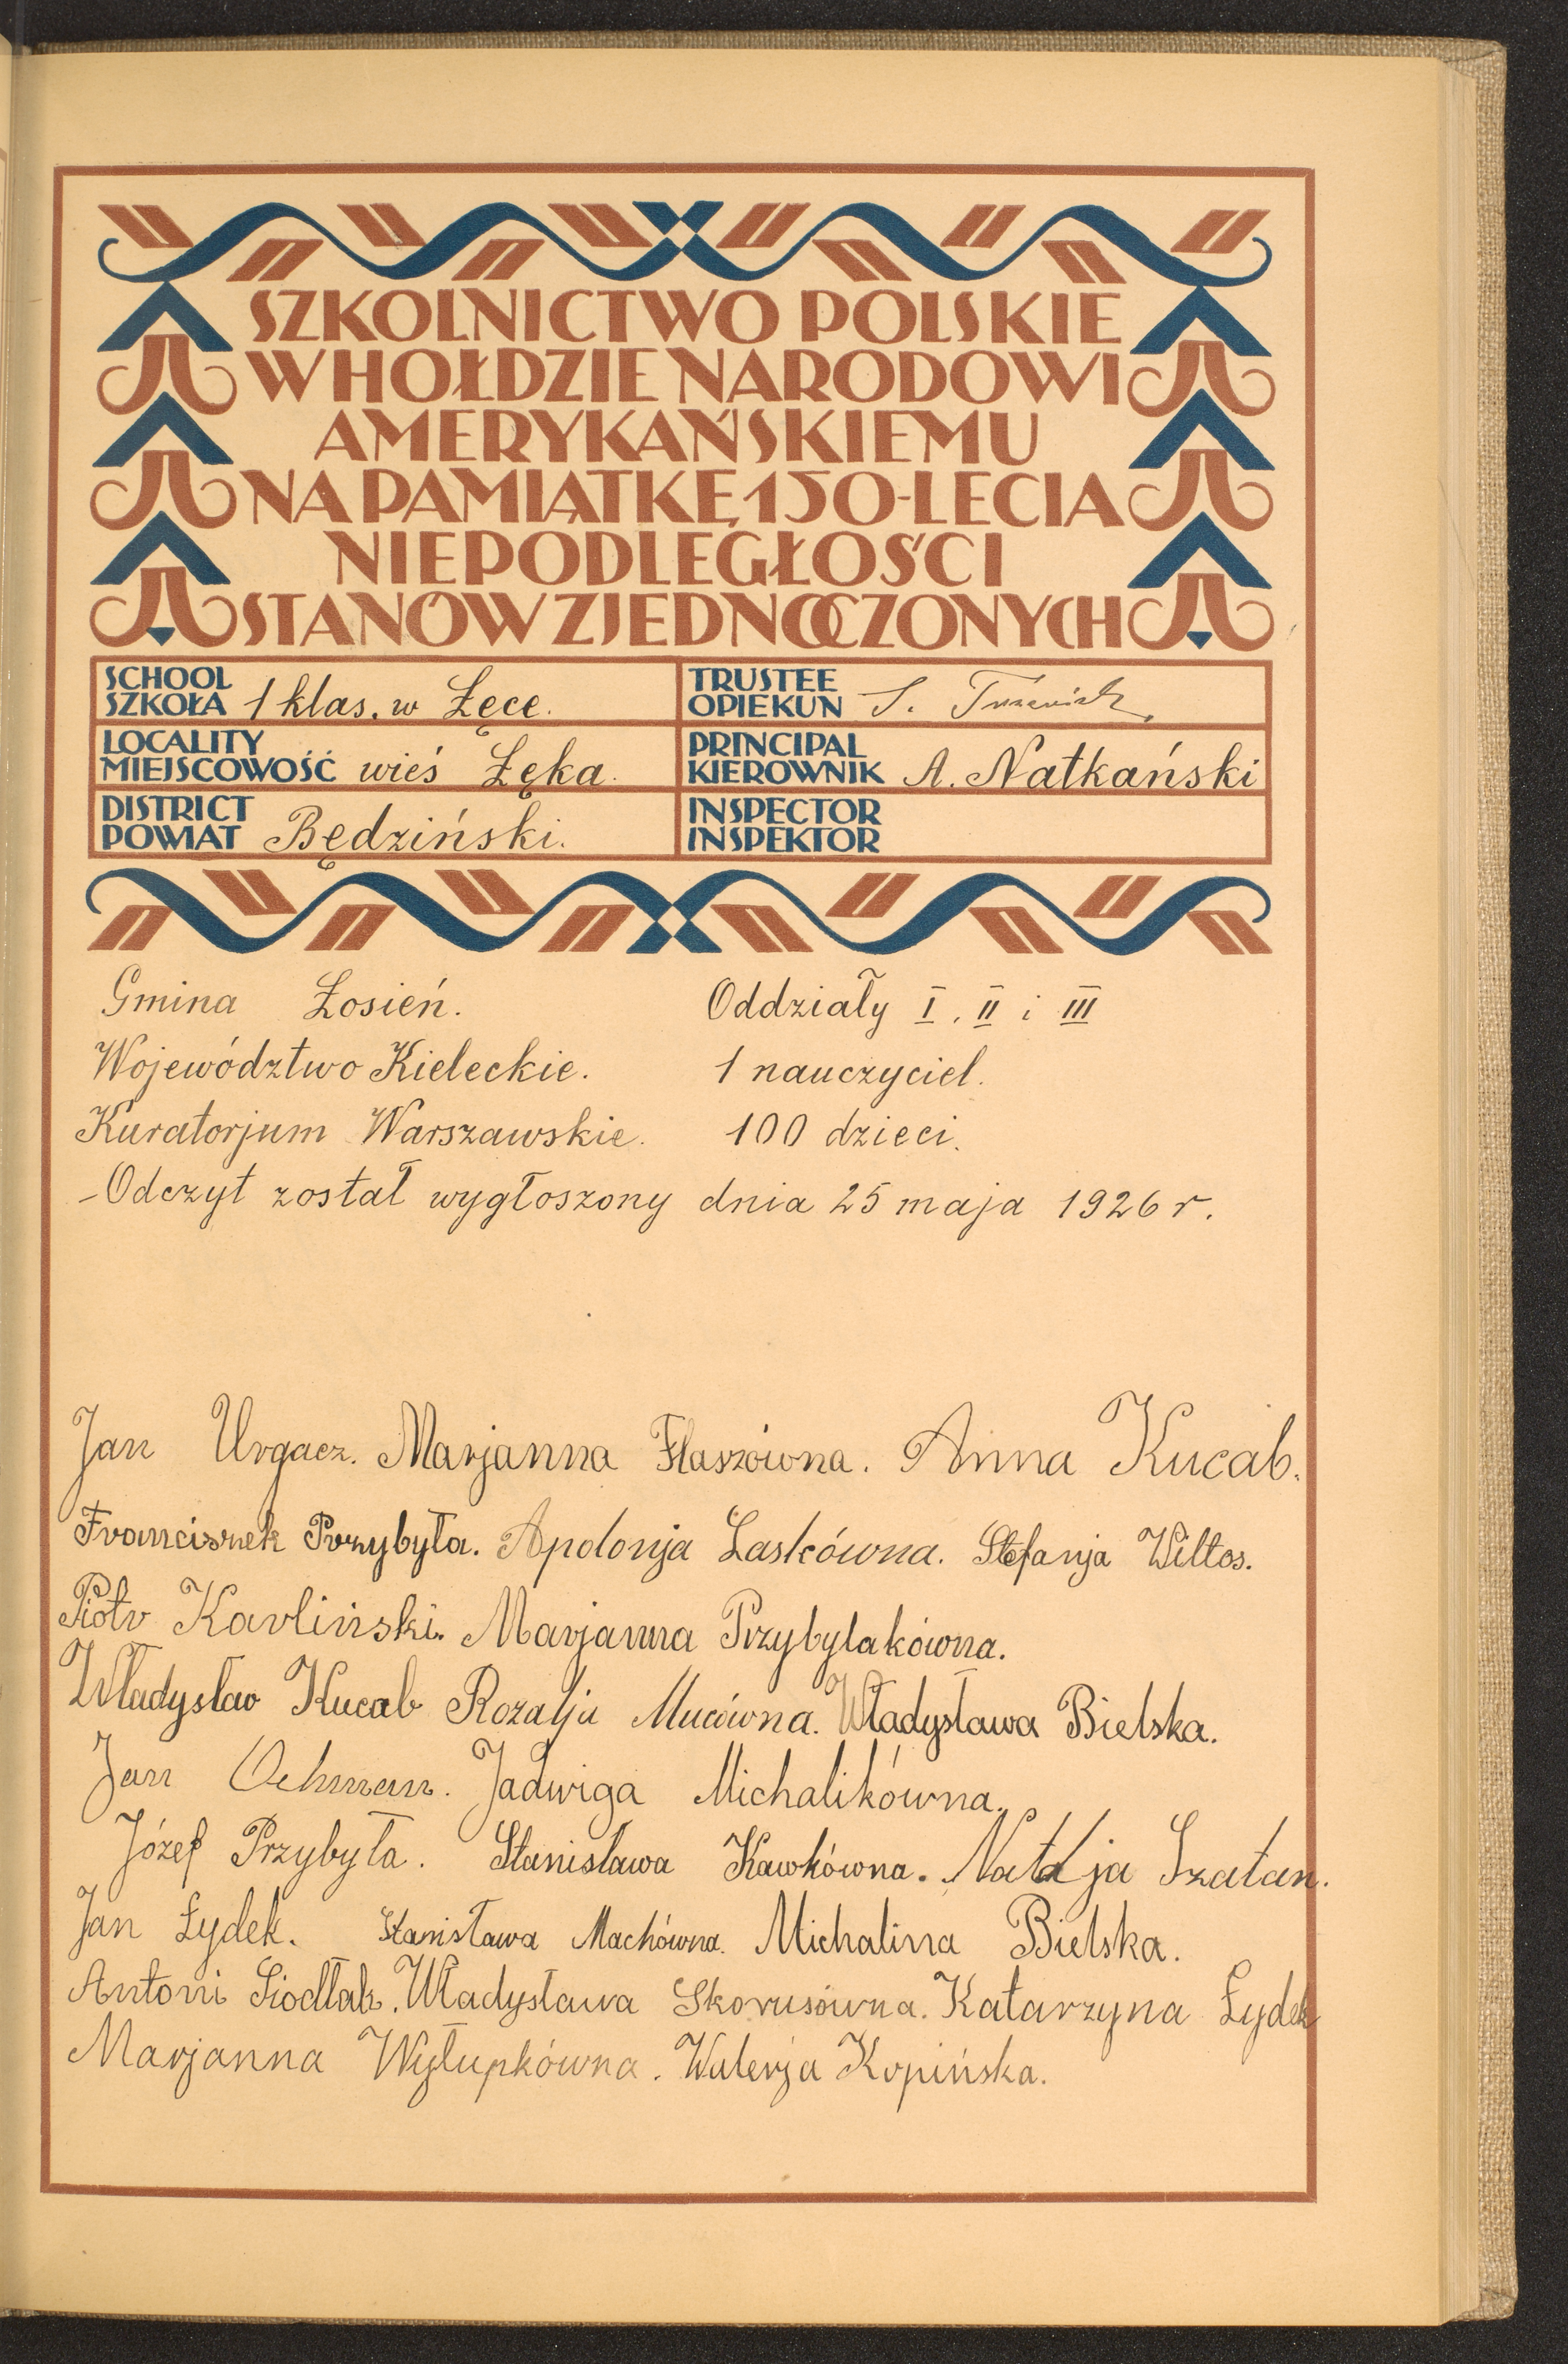 SZKOLNICTWO POLSKIE
W HOŁDZIE NARODOWI
AMERYKAŃSKIEMU
NA PAMIĄTKĘ 150-LECIA
NIEPODLEGŁOŚCI
STANÓW ZJEDNOCZONYCH
SCHOOL
SZKOŁA 1 klas. w Łęce.
TRUSTEE
OPIEKUN S.
LOCALITY
MIEJSCOWOŚĆ wieś Łęka.
PRINCIPAL
KIEROWNIK A. Natkański
DISTRICT
POWIAT Będziński.
INSPECTOR
INSPEKTOR
Gmina Łosień. Oddziały I, II i III
Województwo Kieleckie. 1 nauczyciel.
Kuratorjum Warszawskie. 100 dzieci.
-Odczyt został wygłoszony dnia 25 maja 1926 r.
Jan Urgacz. Marjanna Flaszówna. Anna Kucab.
Franciszek Przybyła. Apolonja Laskówna. Stefanja Wiltos.
Piotr Karliński. Marjanna Przybylakówna.
Władysław Kucab Rozalja Mucówna. Władysława Bielska.
Jan Ochman. Jadwiga Michalikówna.
Józef Przybyła. Stanisława Kawkówna. Natalja Szatan.
Jan Łydek. Stanisława Machówna. Michalina Bielska.
Antoni Siodłak. Władysława Skorusówna. Katarzyna Łydek
Marjanna Wyłupkówna. Walerja Kopińska.